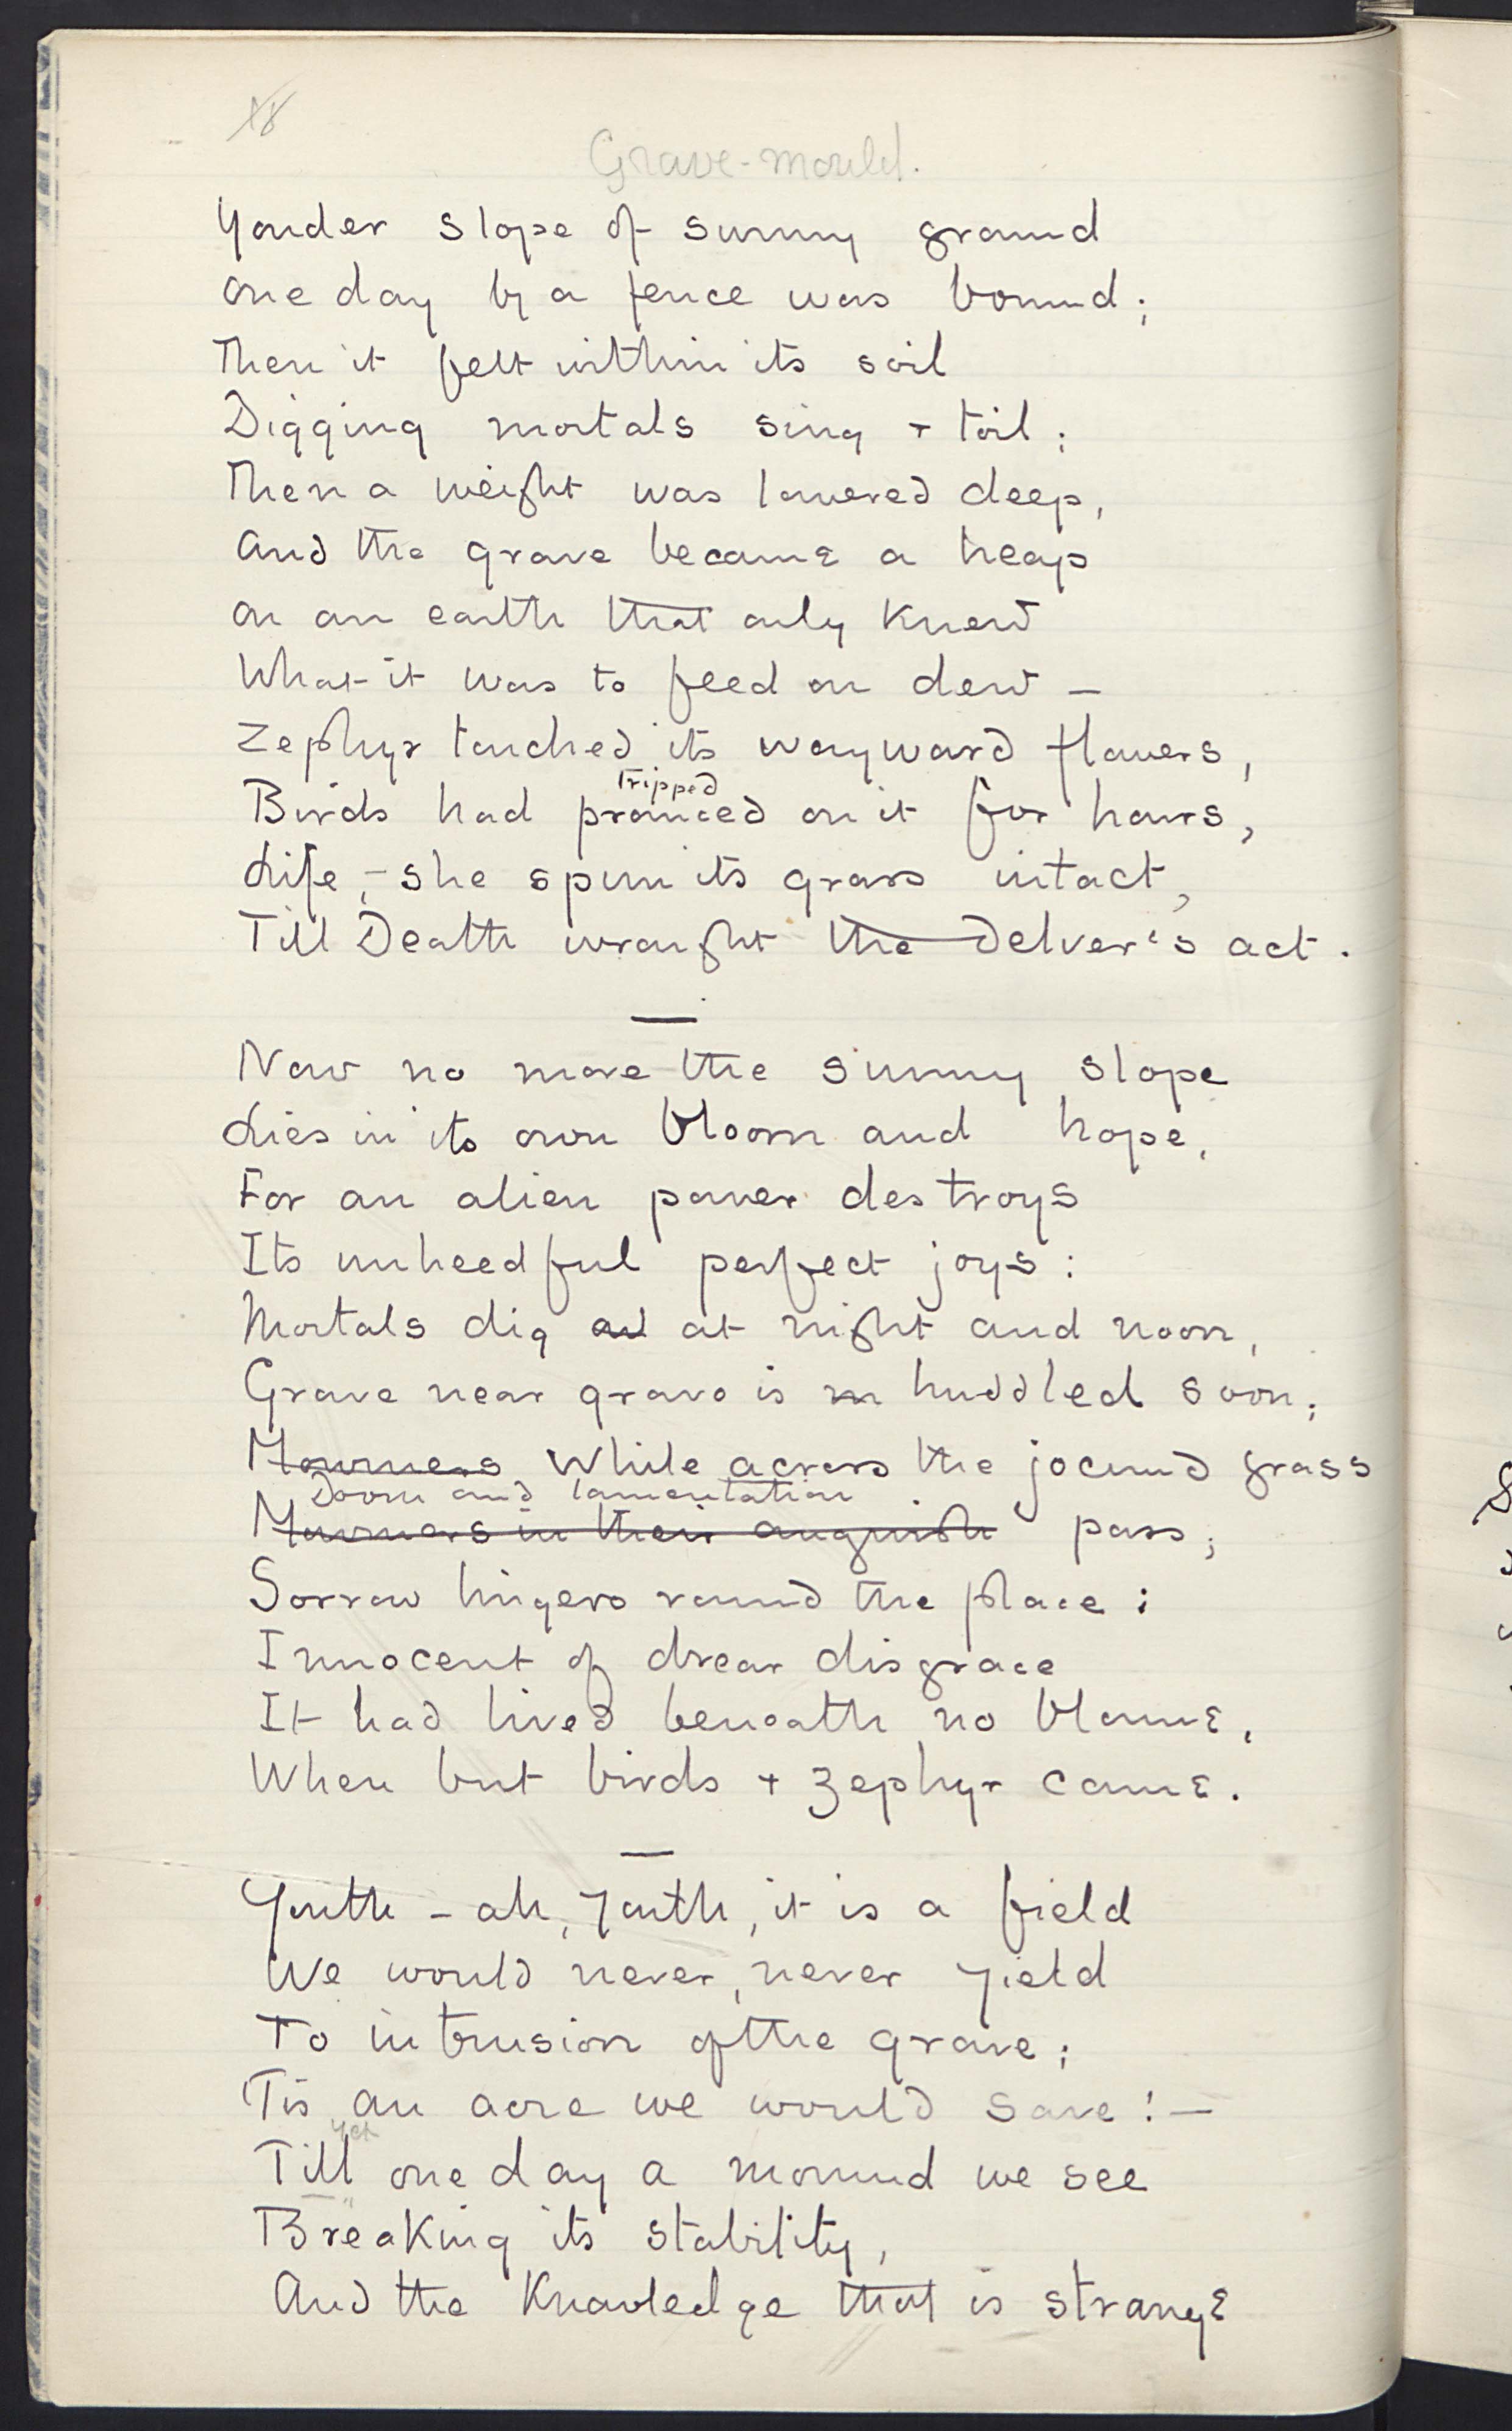 18
Grave-mould.
Yonder slope of sunny ground
One day by a fence was bound;
Then it felt within its soil
Digging mortals sing + toil;
Then a weight was lowered deep,
And the grave became a heap
On an earth that only knew
What it was to feed on dew –
Zephyr touched its wayward flowers,
Tripped
Birds had pranced on it for hours,
Life, – she spun its grass intact,
Till Death wrought the Delver's act.
Now no more the sunny slope
Lies in its own bloom and hope,
For an alien power destroys
Its unheedful perfect joys:
Mortals dig at night and noon,
Grave near grave is huddled soon;
Mourners While across the jocund grass
Doom and lamentation
Mourners in their anguish pass;
Sorrow lingers round the place;
Innocent of drear disgrace
It had lived beneath no blame,
When but birds + zephyr came.
Youth – ah, Youth, it is a field
We would never, never yield
To intrusion of the grave;
'Tis an acre we would save! –
Yet
Till one day a mound we see
Breaking its stability,
And the knowledge that is strange